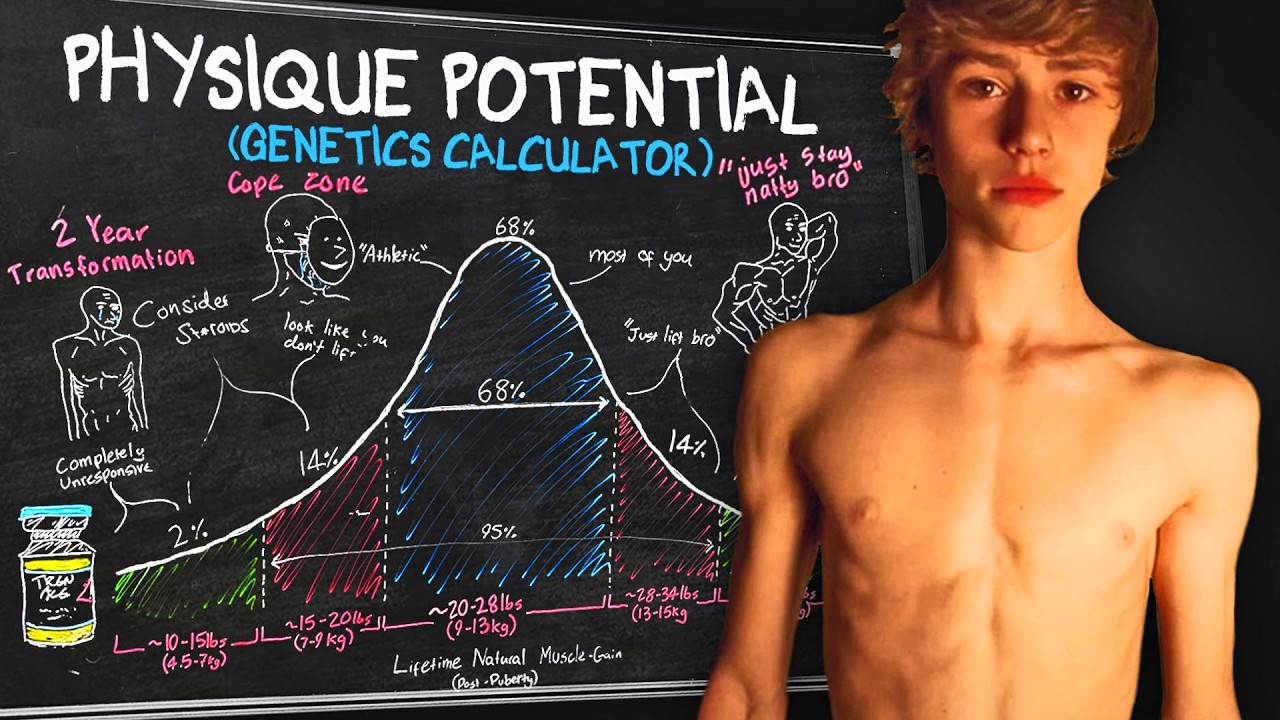 PHYSIQUE POTENTIAL
(GENETICS CALCULATOR)
Cope Zone
"just stay
natty bro"
2 Year
Transformation
68%
"Athletic"
most of you
Consider
St*roids
look like you
don't lift
"Just lift bro"
68%
Completely
Unresponsive
14%
14%
2%
95%
TREN
ACE
~10-15lbs
(4.5-7kg)
~15-20lbs
(7-9kg)
~20-28lbs
(9-13kg)
~28-34lbs
(13-15kg
Lifetime Natural Muscle-Gain
(Post-Puberty)